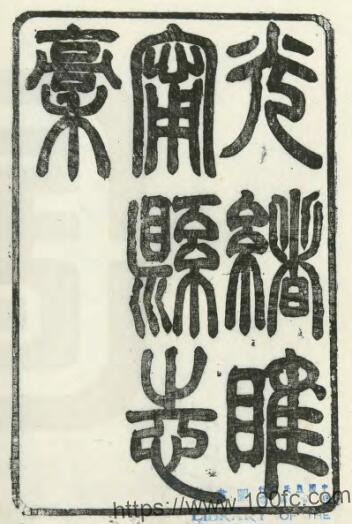 光緒睢
甯縣志
稾
https://www.100fc.com
LIBRARY OF THE